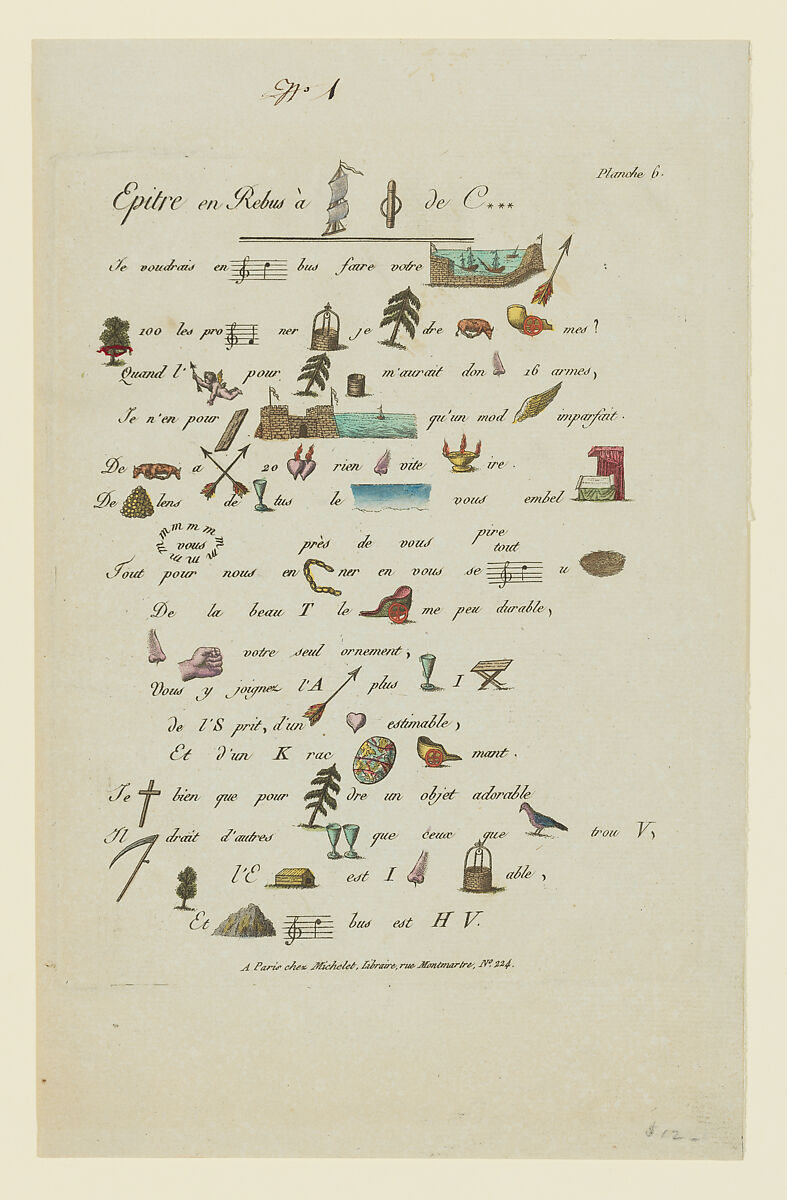 Nº 1
Planche 6.
Epitre en Rebus à de C***
Je voudrais en bus faire votre :
100 les pro ner je dre mes?
Quand l' pour m'aurait don 16 armes,
Je n'en pour qu'un mod imparfait.
De a 20 rien vite ire.
De lens de tus le vous embel
m m m m m m m m m
vous près de vous pire
tout
Tout pour nous en ner en vous se u
De la beau T le me peu durable,
votre seul ornement,
Vous y joignez l'A plus I
de l'S prit, d'un estimable,
Et d'un K rac mant.
Je bien que pour dre un objet adorable
Il drait d'autres que ceux que trou V,
l'E est I able,
Et bus est H V.
A Paris chez Michelet, Libraire, rue Montmartre, Nº 224.
$12-